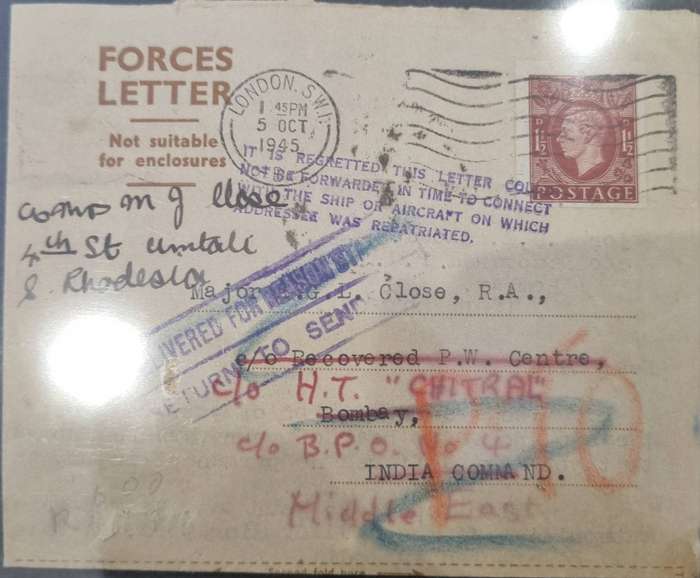 FORCES
LETTER
Not suitable
for enclosures
LONDON. S.W.1.
1 45PM
5 OCT
1945
1½ 1½
POSTAGE
IT IS REGRETTED THIS LETTER COULD
NOT BE FORWARDED IN TIME TO CONNECT
WITH THE SHIP OR AIRCRAFT ON WHICH
ADDRESSEE WAS REPATRIATED.
c/o Mrs M J Close
4th St Umtali
S. Rhodesia
Major G.L. Close, R.A.,
VERED FOR REASON ST
RETURN TO SEND
c/o Recovered P.W. Centre,
c/o H.T. "CHITRAL"
Bombay,
PTO
c/o B.P.O. No 4
INDIA COMMAND.
Middle East